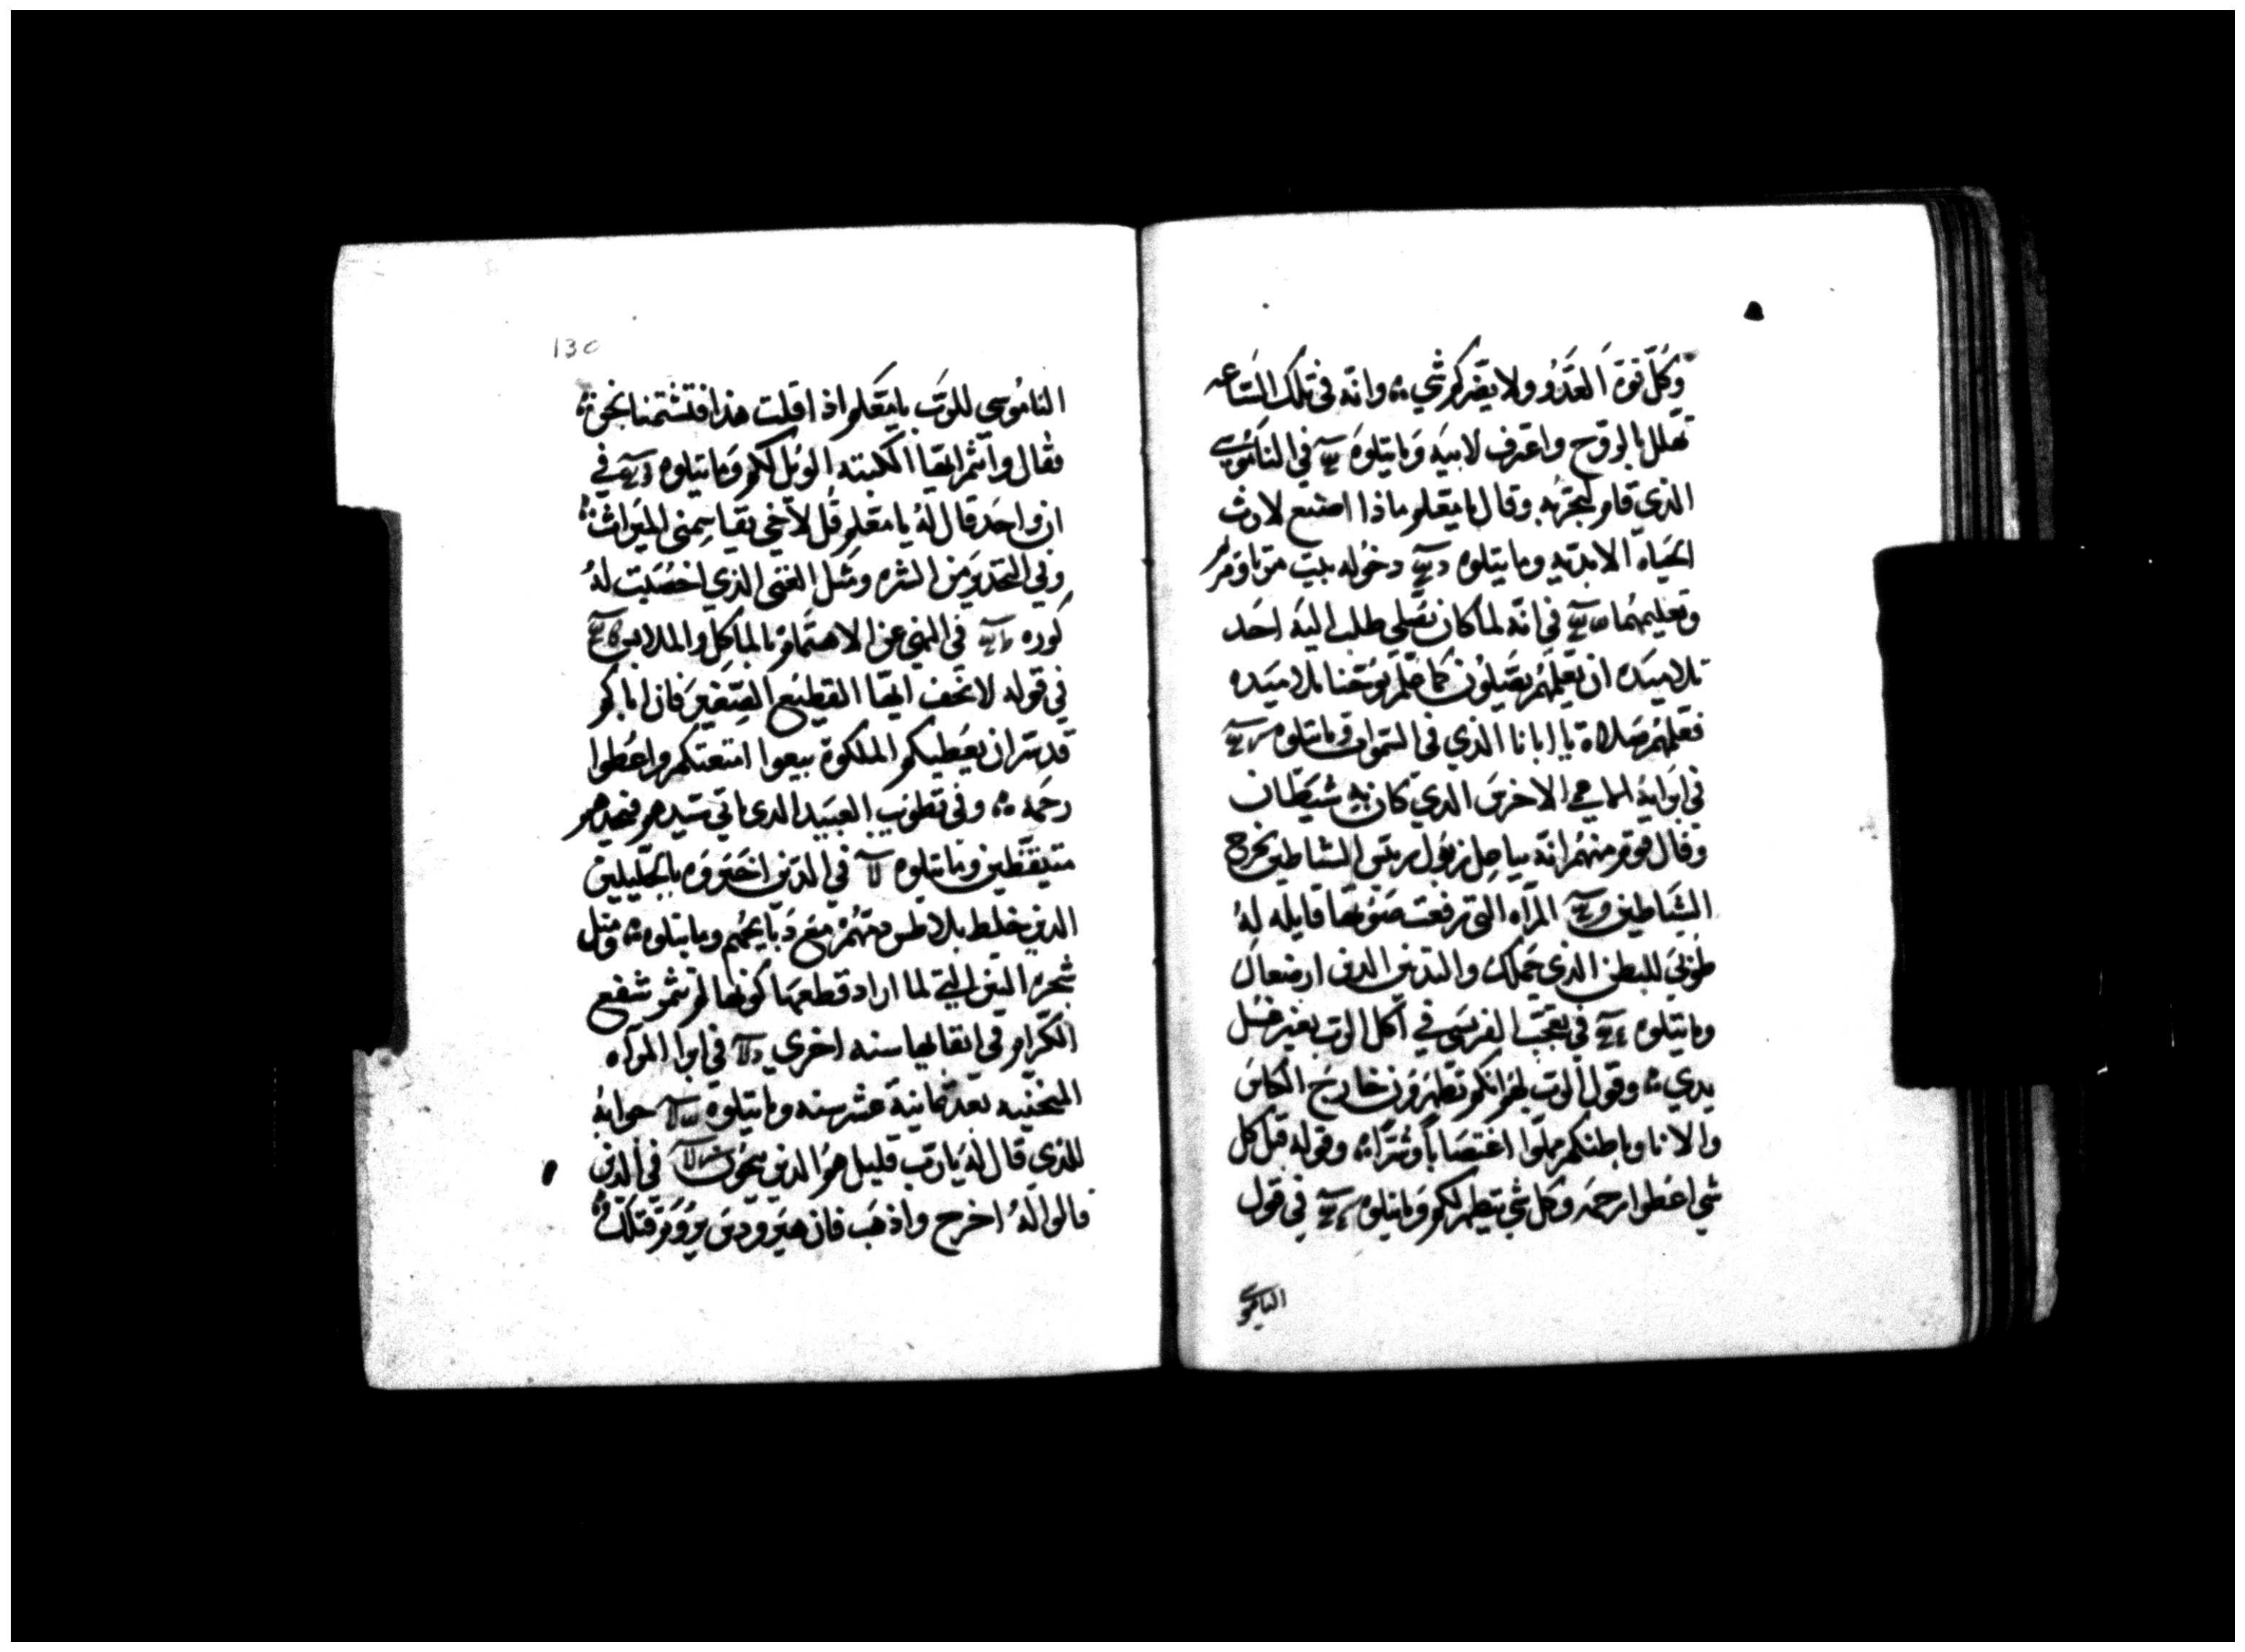 وكل قوة العدو ولا يضركم شي وانه في تلك الساعه
تهلل بالروح واعترف لابيه وما يتلوه في الناموسي
الذي قام ليجربه وقال يا معلم ماذا اصنع لارث
الحياه الابديه وما يتلوه دخوله بيت مرتا ومريم
وتعليمهما في انه لما كان يصلي طلب اليه احد
تلاميده ان يعلمهم يصلون كما علم يوحنا تلاميده
فعلمهم صلاة يا ابانا الذي في السموات وما يتلوه
في ابرايه الاخرس الذي كان به شيطان
وقال قوم منهم انه بباعل زبول ريس الشياطين يخرج
الشياطين المراه التي رفعت صوتها قايله له
طوبي للبطن الذي حملك والتديين الدين ارضعاك
وما يتلوه في تعجب الفريسي في اكل الرب بغير غسل
يدي وقول الرب لهم انكم تطهرون خارج الكاس
والانا وباطنكم مملوا اغتصابا وشرا وقوله قبل كل
شي اعطوا رحمه وكل شي يتطهر لكم وما يتلوه في قول
الناموسي
130
الناموسي للرب يا معلم اذا قلت هذا فتشتمنا نحن
فقال وانتم ايها الكتبه الويل لكم وما يتلوه في
ان واحد قال له يا معلم قل لاخي يقاسمني الميراث
وفي التحدير من الشره ومثل الغني الذي اخصبت له
كوره في النهي عن الاهتمام بالماكل والملابس
في قوله لا تخف ايها القطيع الصغير فان اباكم
قد سر ان يعطيكم الملكوة بيعوا امتعتكم واعطوا
رحمه وفي تطويب العبيد الدي ياتي سيدهم فيجدهم
متيقظين وما يتلوه في الدين اخبروه بالجليليين
الدين خلط بلاطس دمهم مع دبايحهم وما يتلوه ومثل
شجره التين التي لما اراد قطعها كونها لم تثمر شفع
الكرام في ابقايها سنه اخري في ابرا المراه
المنحنيه بعد تمانية عشر سنه وما يتلوه جوابه
للذي قال له يا رب قليل هم الدين ينجون في الدين
قالوا له اخرج واذهب فان هيرودس يروم قتلك